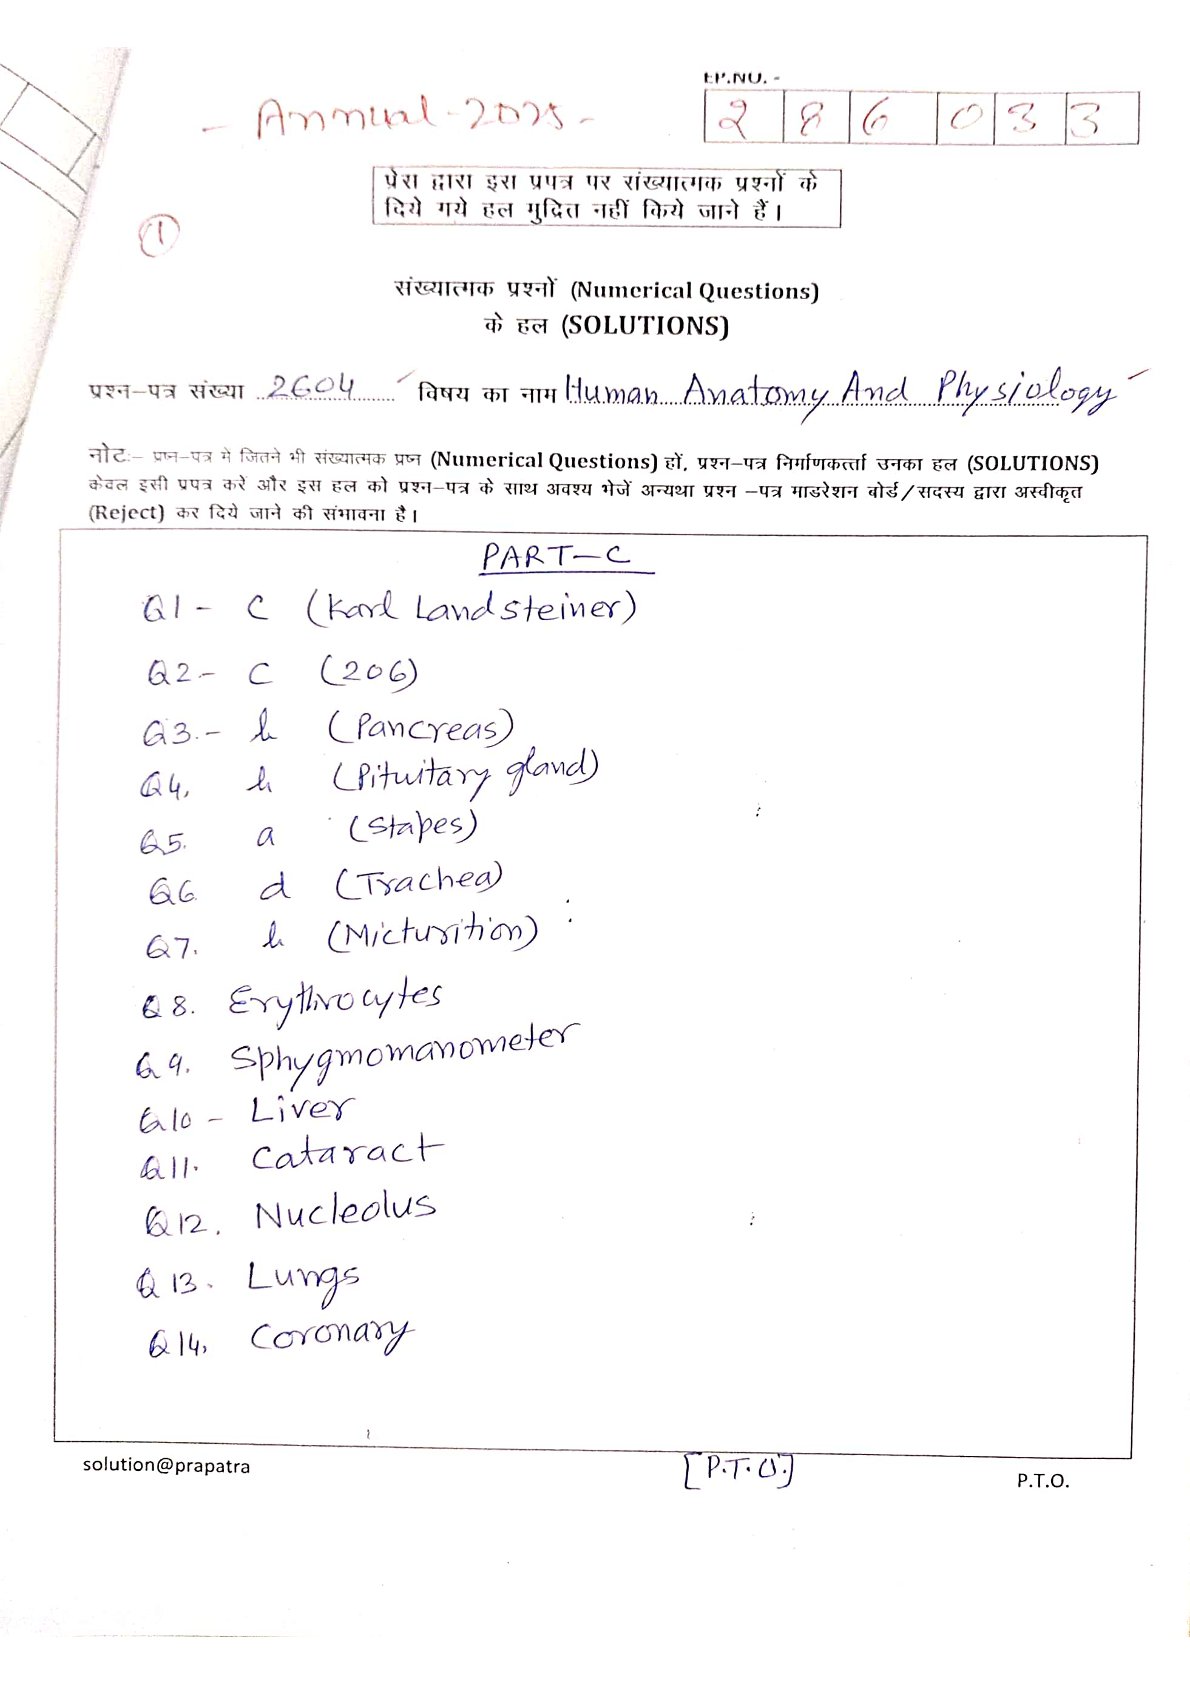 EP.NO. -
- Annual-2025 -
2 8 6 0 3 3
प्रेस द्वारा इस प्रपत्र पर संख्यात्मक प्रश्नों के
दिये गये हल मुद्रित नहीं किये जाने हैं।
1
संख्यात्मक प्रश्नों (Numerical Questions)
के हल (SOLUTIONS)
प्रश्न–पत्र संख्या 2604 विषय का नाम Human Anatomy And Physiology
नोटः– प्रश्न–पत्र मे जितने भी संख्यात्मक प्रश्न (Numerical Questions) हों, प्रश्न–पत्र निर्माणकर्त्ता उनका हल (SOLUTIONS)
केवल इसी प्रपत्र करें और इस हल को प्रश्न–पत्र के साथ अवश्य भेजें अन्यथा प्रश्न –पत्र माडरेशन बोर्ड/सदस्य द्वारा अस्वीकृत
(Reject) कर दिये जाने की संभावना है।
PART-C
Q1 - C (Karl Landsteiner)
Q2- C (206)
Q3.- b (Pancreas)
Q4. b (Pituitary gland)
Q5. a (Stapes)
Q6. d (Trachea)
Q7. b (Micturition)
Q8. Erythrocytes
Q9. Sphygmomanometer
Q10 - Liver
Q11. Cataract
Q12. Nucleolus
Q13. Lungs
Q14. Coronary
solution@prapatra
[P.T.O.]
P.T.O.